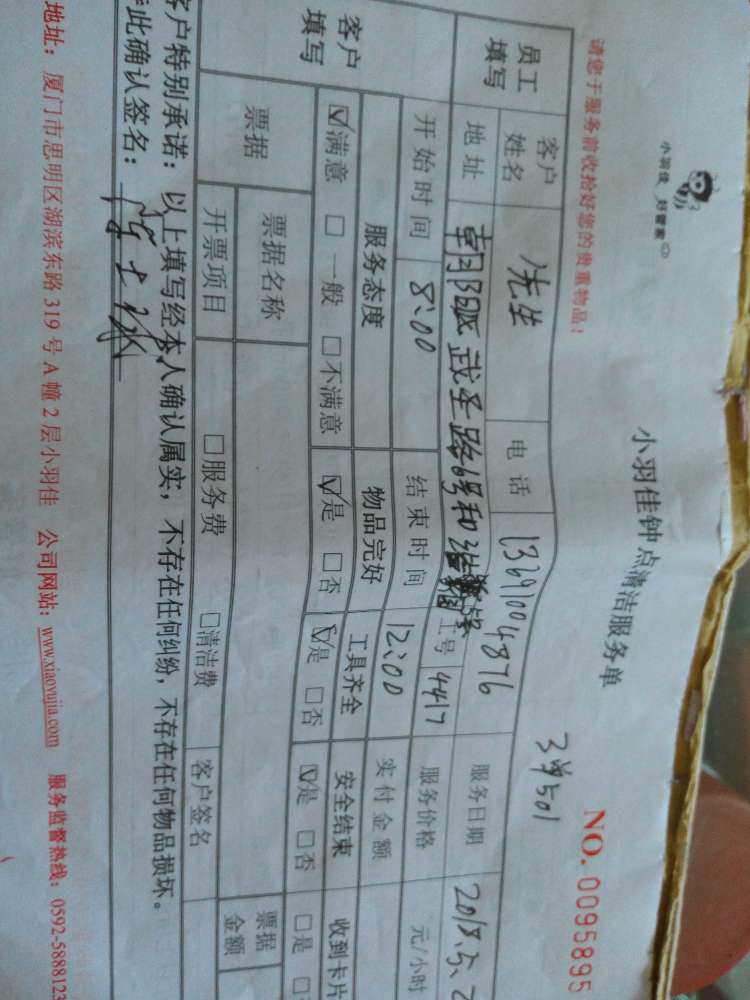 小羽佳 好管家
小羽佳钟点清洁服务单
请您于服务前收拾好您的贵重物品!
NO. 0095895
3单501
员工填写
客户姓名 先生 电话 13691004876 服务日期 2018.5.2
地址 朝阳区武圣路6号和 工号 4417 服务价格 元/小时
开始时间 8:00 结束时间 12:00 实付金额
客户填写
服务态度 物品完好 工具齐全 安全结束 收到卡片
☑满意 □一般 □不满意 ☑是 □否 ☑是 □否 ☑是 □否 □是 □
票据 票据名称 票据金额
开票项目 □服务费 □清洁费 客户签名
客户特别承诺:以上填写经本人确认属实,不存在任何纠纷,不存在任何物品损坏。
此确认签名:
地址:厦门市思明区湖滨东路319号A幢2层小羽佳 公司网站:www.xiaoyujia.com 服务监督热线:0592-5888123